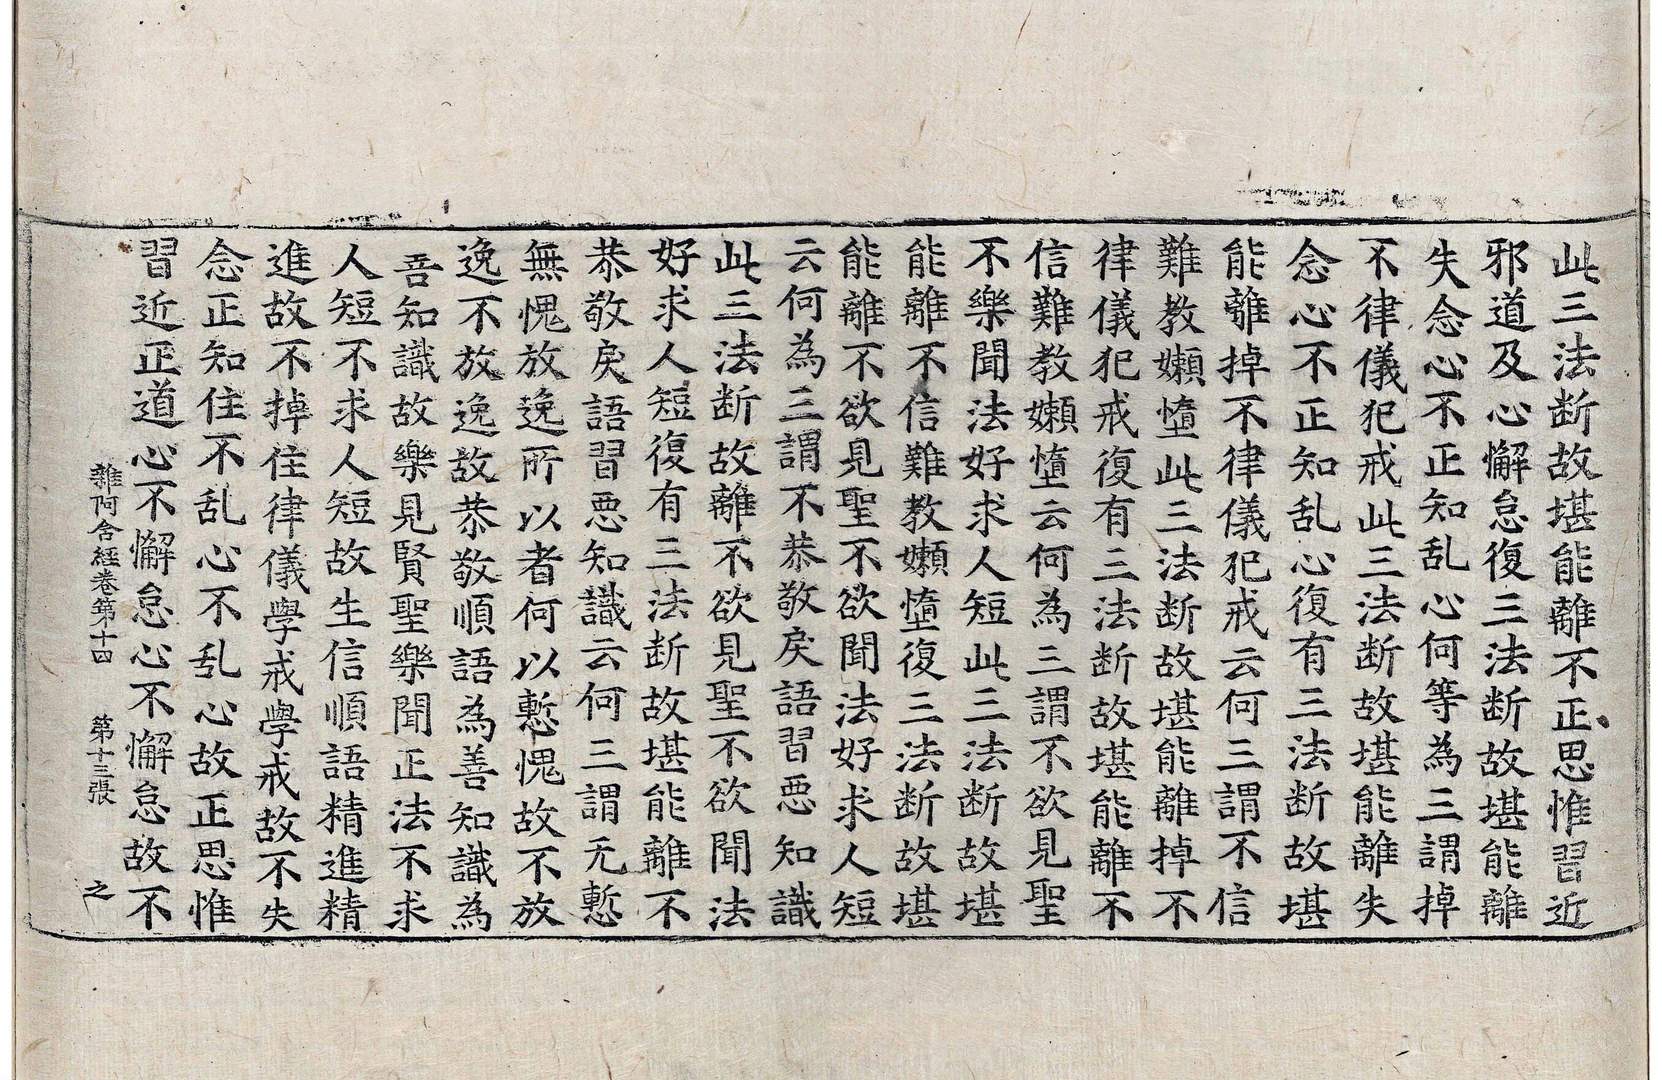 此三法断故堪能離不正思惟習近
邪道及心懈怠復三法断故堪能離
失念心不正知乱心何等為三謂掉
不律儀犯戒此三法断故堪能離失
念心不正知乱心復有三法断故堪
能離掉不律儀犯戒云何三謂不信
難教嬾惰此三法断故堪能離掉不
律儀犯戒復有三法断故堪能離不
信難教嬾惰云何為三謂不欲見聖
不樂聞法好求人短此三法断故堪
能離不信難教嬾惰復三法断故堪
能離不欲見聖不欲聞法好求人短
云何為三謂不恭敬戾語習惡知識
此三法断故離不欲見聖不欲聞法
好求人短復有三法断故堪能離不
恭敬戾語習惡知識云何三謂无慙
無愧放逸所以者何以慙愧故不放
逸不放逸故恭敬順語為善知識為
善知識故樂見賢聖樂聞正法不求
人短不求人短故生信順語精進精
進故不掉住律儀學戒學戒故不失
念正知住不乱心不乱心故正思惟
習近正道心不懈怠心不懈怠故不
雜阿含經卷第十四 第十三張 之